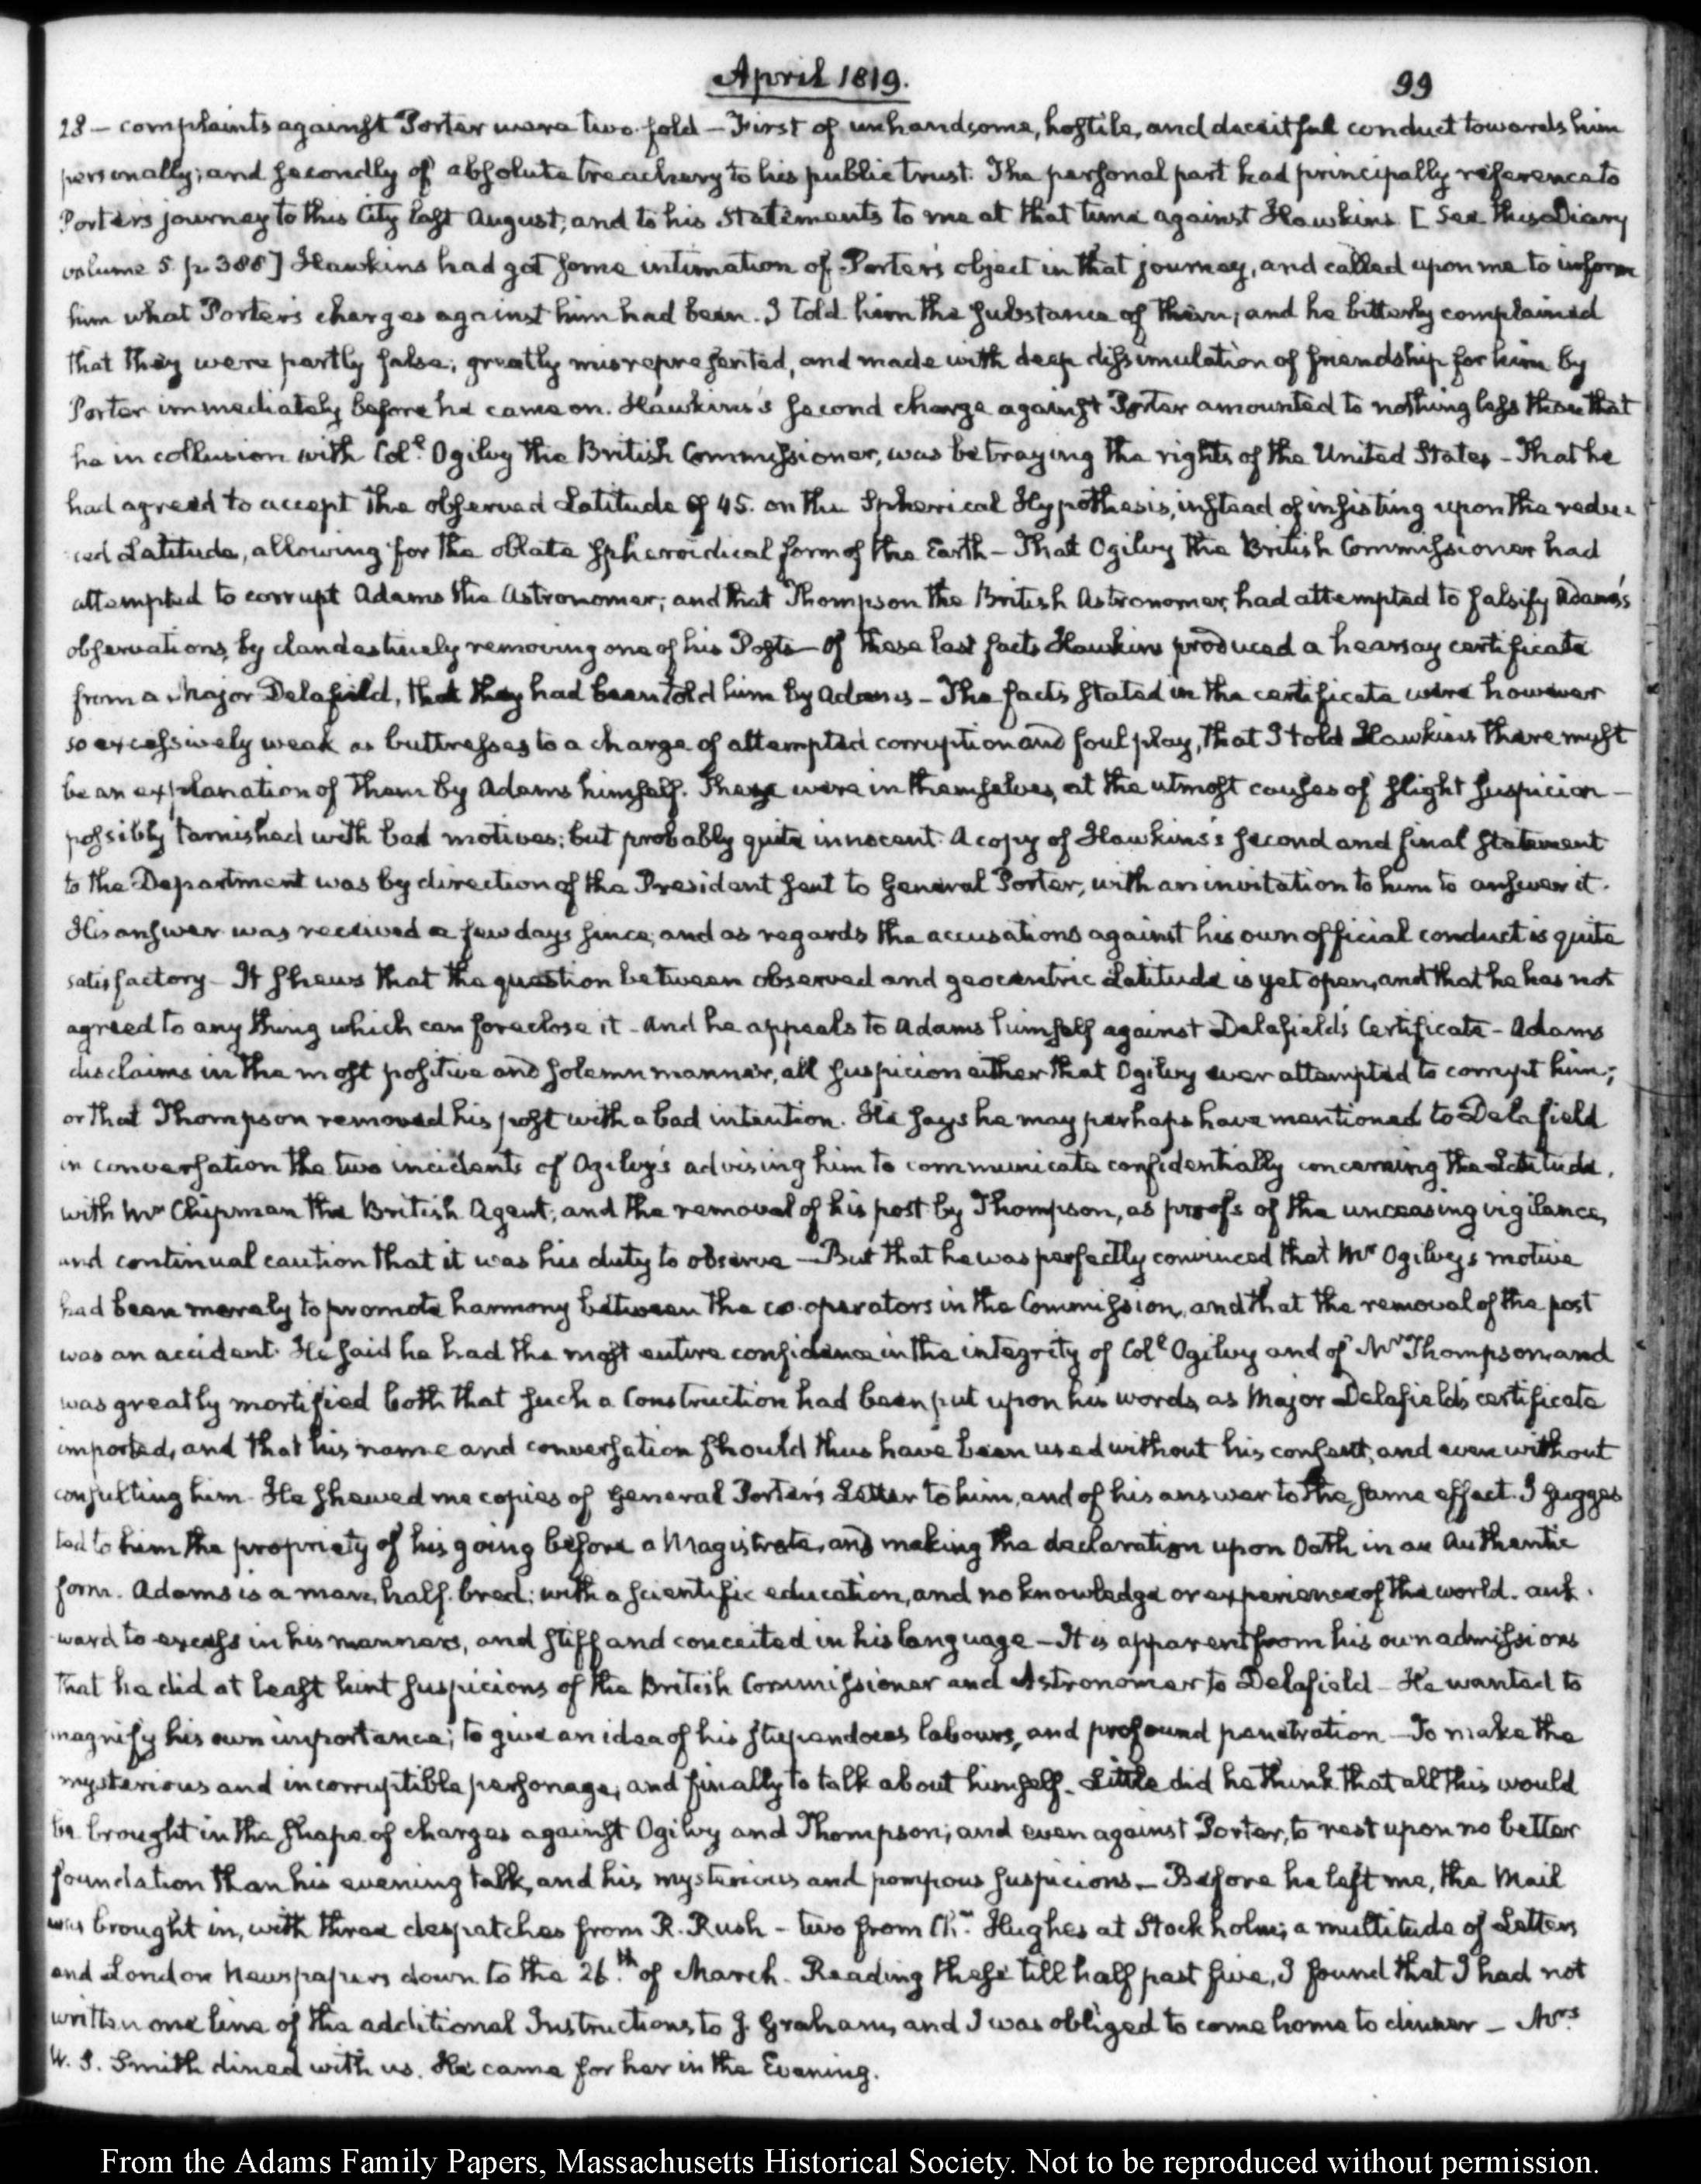 April 1819.
99
28 — complaints against Porter were two fold — First of unhandsome, hostile, and deceitful conduct towards him
personally; and secondly of absolute treachery to his public trust. The personal part had principally reference to
Porter's journey to this City last August; and to his Statements to me at that time against Hawkins [See this Diary
volume 5 p. 388] Hawkins had got some intimation of Porter's object in that journey, and called upon me to inform
him what Porter's charges against him had been. I told him the substance of them; and he bitterly complained
that they were partly false; greatly misrepresented, and made with deep dissimulation of friendship for him by
Porter immediately before he came on. Hawkins's second charge against Porter amounted to nothing less than that
he in collusion with Coll. Ogilvy the British Commissioner, was betraying the rights of the United States — That he
had agreed to accept the observed Latitude of 45. on the Spherical Hypothesis, instead of insisting upon the redu-
ced Latitude, allowing for the oblate spheroidical form of the Earth — That Ogilvy the British Commissioner had
attempted to corrupt Adams the Astronomer; and that Thompson the British Astronomer, had attempted to falsify Adams's
observations, by clandestinely removing one of his Posts — Of these last facts Hawkins produced a hearsay certificate
from a Major Delafield, that they had been told him by Adams — The facts stated in the certificate were however
so excessively weak as buttresses to a charge of attempted corruption and foul play, that I told Hawkins there must
be an explanation of them by Adams himself. These were in themselves, at the utmost causes of slight suspicion —
possibly tarnished with bad motives; but probably quite innocent. A copy of Hawkins's second and final Statement
to the Department was by direction of the President sent to General Porter, with an invitation to him to answer it.
His answer was received a few days since, and as regards the accusations against his own official conduct is quite
satisfactory — It shews that the question between observed and geocentric Latitude is yet open, and that he has not
agreed to any thing which can foreclose it — And he appeals to Adams himself against Delafield's Certificate — Adams
disclaims in the most positive and solemn manner, all suspicion either that Ogilvy ever attempted to corrupt him;
or that Thompson removed his post with a bad intention. He says he may perhaps have mentioned to Delafield
in conversation the two incidents of Ogilvy's advising him to communicate confidentially concerning the Latitude,
with Mr Chipman the British Agent; and the removal of his post by Thompson, as proofs of the unceasing vigilance,
and continual caution that it was his duty to observe — But that he was perfectly convinced that Mr Ogilvy's motive
had been merely to promote harmony between the co-operators in the Commission, and that the removal of the post
was an accident. He said he had the most entire confidence in the integrity of Coll Ogilvy and of Mr Thompson, and
was greatly mortified both that such a Construction had been put upon his words, as Major Delafield's certificate
imported, and that his name and conversation should thus have been used without his consent, and even without
consulting him. He shewed me copies of General Porter's Letter to him, and of his answer to the same effect. I sugges
ted to him the propriety of his going before a Magistrate, and making the declaration upon Oath in an Authentic
form. Adams is a man, half-bred; with a scientific education, and no knowledge or experience of the world. auk-
ward to excess in his manners, and stiff and conceited in his language — It is apparent from his own admissions
that he did at least hint suspicions of the British Commissioner and Astronomer to Delafield — He wanted to
magnify his own importance; to give an idea of his stupendous labours, and profound penetration — To make the
mysterious and incorruptible personage; and finally to talk about himself. Little did he think that all this would
be brought in the shape of charges against Ogilvy and Thompson; and even against Porter, to rest upon no better
foundation than his evening talk, and his mysterious and pompous suspicions — Before he left me, the Mail
was brought in, with three despatches from R. Rush — two from Chr. Hughes at Stockholm; a multitude of Letters
and London Newspapers down to the 26.th of March. Reading these till half past five, I found that I had not
written one line of the additional Instructions to J. Graham, and I was obliged to come home to dinner — Mrs
W. S. Smith dined with us. He came for her in the Evening.
From the Adams Family Papers, Massachusetts Historical Society. Not to be reproduced without permission.